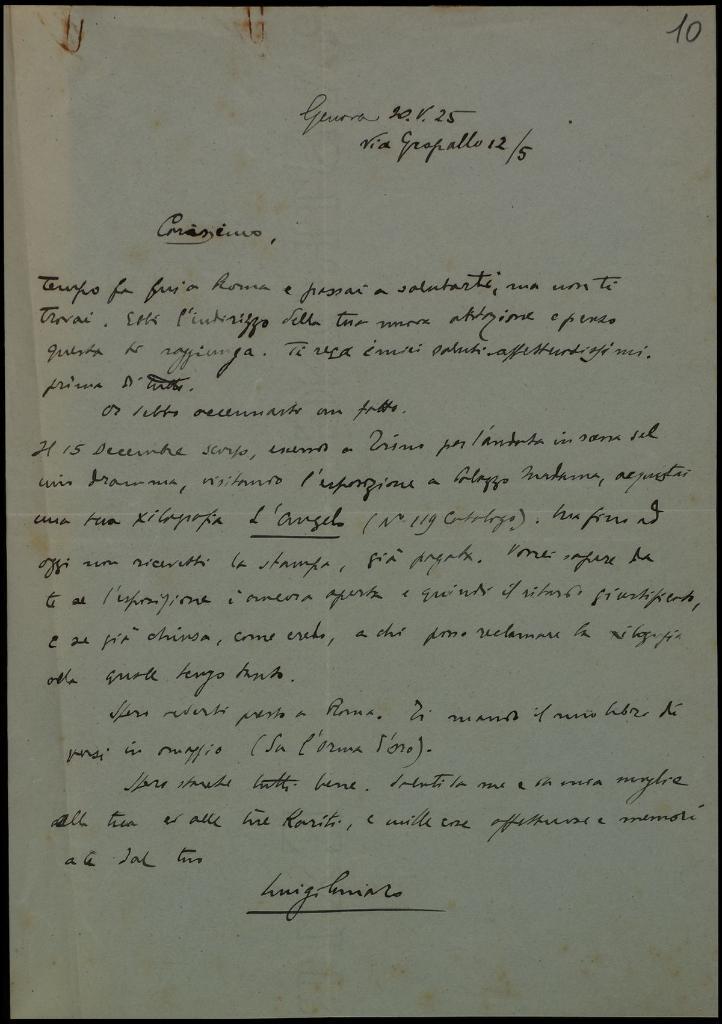 10
Genova 20.V.25
Via Gropallo 12/5
Carissimo,
Tempo fa fui a Roma e passai a salutarti, ma non ti
trovai. Ebbi l'indirizzo della tua nuova abitazione e penso
questa ti raggiunga. Ti rechi i miei saluti affettuosissimi.
prima di tutto.
Or debbo accennarti un fatto.
Il 15 Decembre scorso, essendo a Torino per l'andata in scena del
mio dramma, visitando l'esposizione a Palazzo Madama, acquistai
una tua xilografia L'Angelo (No 119 Catalogo). Ma fino ad
oggi non ricevetti la stampa, già pagata. Vorrei sapere da
te se l'esposizione è ancora aperta e quindi il ritardo giustificato,
e se già chiusa, come credo, a chi posso reclamare la xilografia
alla quale tengo tanto.
Spero vederti presto a Roma. Ti mando il mio libro di
versi in omaggio (Su l'Orma d'oro).
Spero stiate tutti bene. Saluti da me e da mia moglie
alla tua ed alle tue, e mille cose affettuose e memori
a te dal tuo